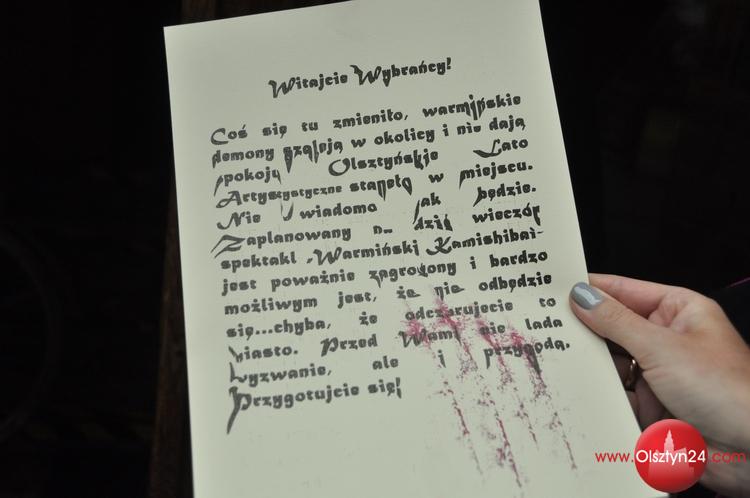 Witajcie Wybrańcy!
Coś się tu zmieniło, warmińskie
demony szaleją w okolicy i nie dają
spokoju Olsztyńskie Lato
Artystystyczne stanęło w miejscu.
Nie wiadomo jak będzie.
Zaplanowany na dziś wieczór
spektakl „Warmiński Kamishibai-
jest poważnie zagrożony i bardzo
możliwym jest, że nie odbędzie
się...chyba, że odczarujecie to
miasto. Przed Wami nie lada
wyzwanie, ale i przygoda.
Przygotujcie się!
www.Olsztyn24.com